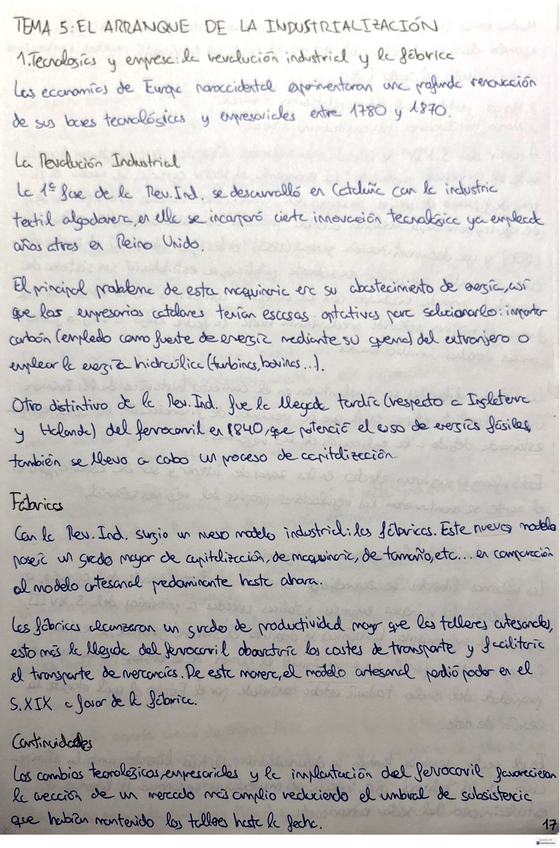 TEMA 5: EL ARRANQUE DE LA INDUSTRIALIZACIÓN
1. Tecnologías y empresa: la revolución industrial y la fábrica
Las economías de Europa noroccidental experimentaron una profunda renovación
de sus bases tecnológicas y empresariales entre 1780 y 1870.
La Revolución Industrial
La 1ª fase de la Rev. Ind. se desarrolló en Cataluña con la industria
textil algodonera, en ella se incorporó cierta innovación tecnológica ya empleada
años atras en Reino Unido.
El principal problema de esta maquinaria era su abastecimiento de energía, así
que los empresarios catalanes tenían escasas optativas para solucionarlo: importar
carbón (empleado como fuente de energía mediante su quema) del extranjero o
emplear la energía hidraúlica (turbinas, bovinas...).
Otro distintivo de la Rev. Ind. fue la llegada tardía (respecto a Inglaterra
y Holanda) del ferrocarril en 1840, que potenció el uso de energías fósiles,
también se llevo a cabo un proceso de capitalización.
Fábricas
Con la Rev. Ind. surgio un nuevo modelo industrial: las fábricas. Este nuevo modelo
poseía un grado mayor de capitalización, de maquinaria, de tamaño, etc... en comparación
al modelo artesanal predominante hasta ahora.
Las fábricas alcanzaron un grado de productividad mayor que los talleres artesanales,
esto más la llegada del ferrocarril abarataría los costes de transporte y facilitaría
el transporte de mercancías. De esta manera, el modelo artesanal perdió poder en el
S. XIX a favor de la fábrica.
Continuidades
Los cambios tecnológicos, empresariales y la implantación del ferrocarril favorecieron
la creación de un mercado más amplio reduciendo el umbral de subsistencia
que habían mantenido los talleres hasta la fecha.
17